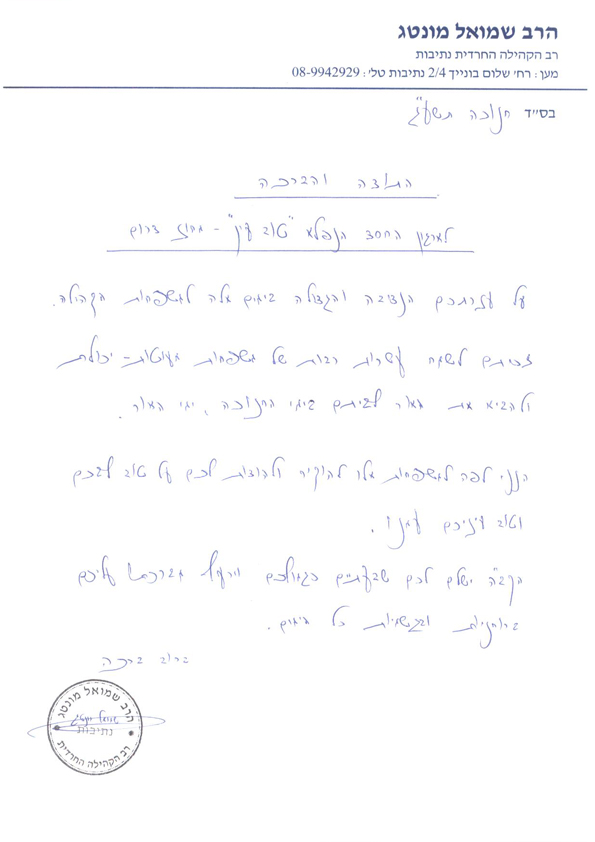 הרב שמואל מונטג
רב הקהילה החרדית נתיבות
מען : רח׳ שלום בונייך 2/4 נתיבות טל׳ : 08-9942929
בס״ד חנוכה תשע"ג
התודה והברכה
לארגון החסד הנפלא "טוב עין" - מחוז דרום
על עזרתכם הנדיבה והגדולה בימים אלה למשפחות הקהילה.
זכיתם לשמח עשרות רבות של משפחות מעוטות-יכולת
ולהביא את האור לביתם בימי החנוכה, ימי האור.
הנני לפה למשפחות אלו להוקיר ולהודות לכם על טוב לבכם
וטוב עיניכם עמנו.
הקב"ה ישלם לכם שבעתיים כגמולכם וירעיף מברכתו עליכם
ברוחניות ובגשמיות כל הימים.
ברוב ברכה
הרב שמואל מונטג
נתיבות
רב הקהילה החרדית